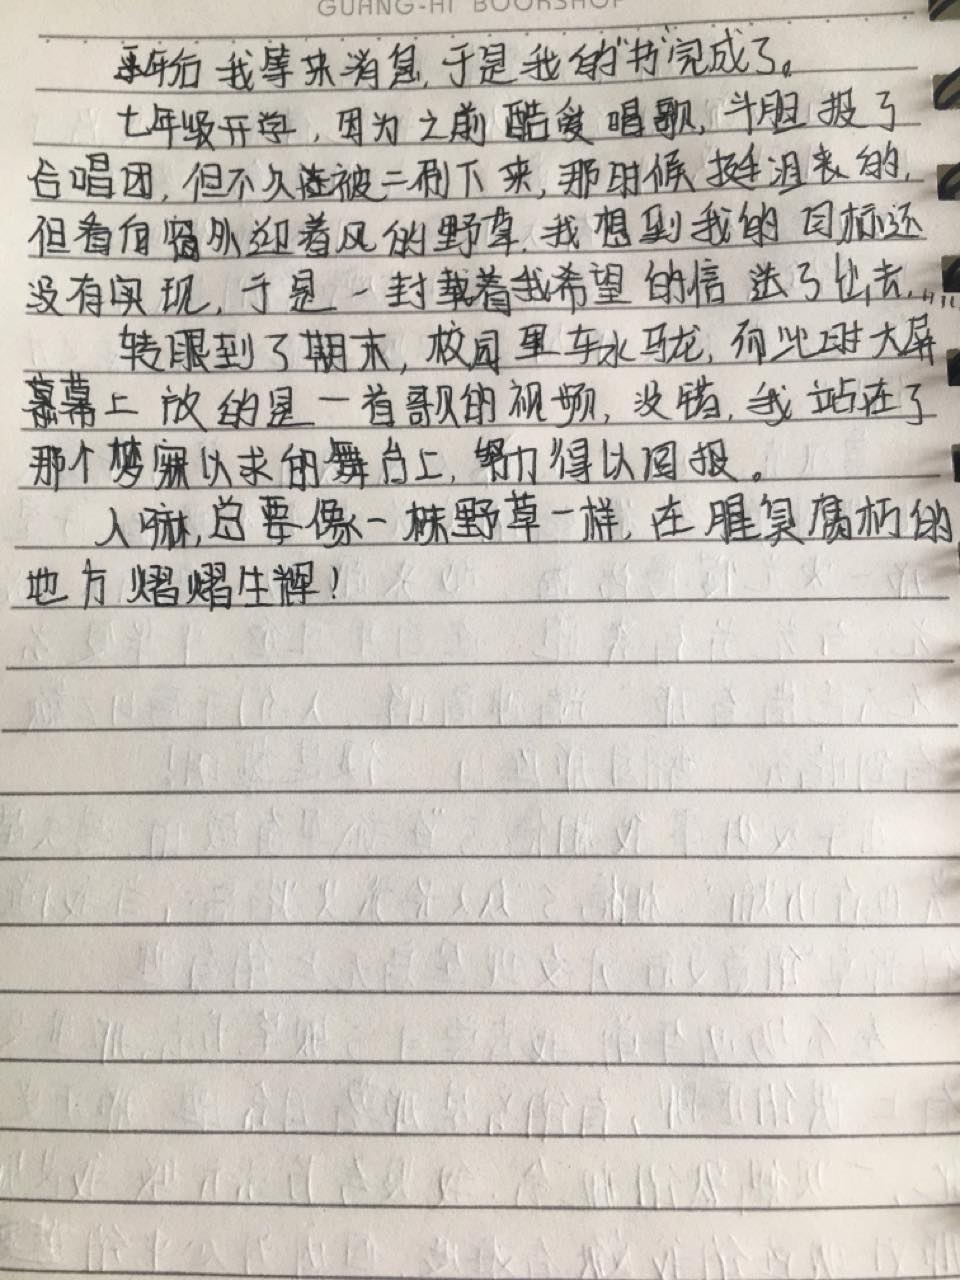 GUANG-HI BOOKSHOP
年后我等来消息,于是我的"书"完成了。
七年级开学,因为之前酷爱唱歌,斗胆报了
合唱团,但不久被二倒下来,那时候挺沮丧的,
但看向窗外迎着风的野草,我想到我的目标还
没有实现,于是一封载着我希望的信送了出去……
转眼到了期末,校园里车水马龙,而此时大屏
幕上放的是一首歌的视频,没错,我站在了
那个梦寐以求的舞台上,努力得以回报。
人嘛,总要像一株野草一样,在腥臭腐朽的
地方熠熠生辉!